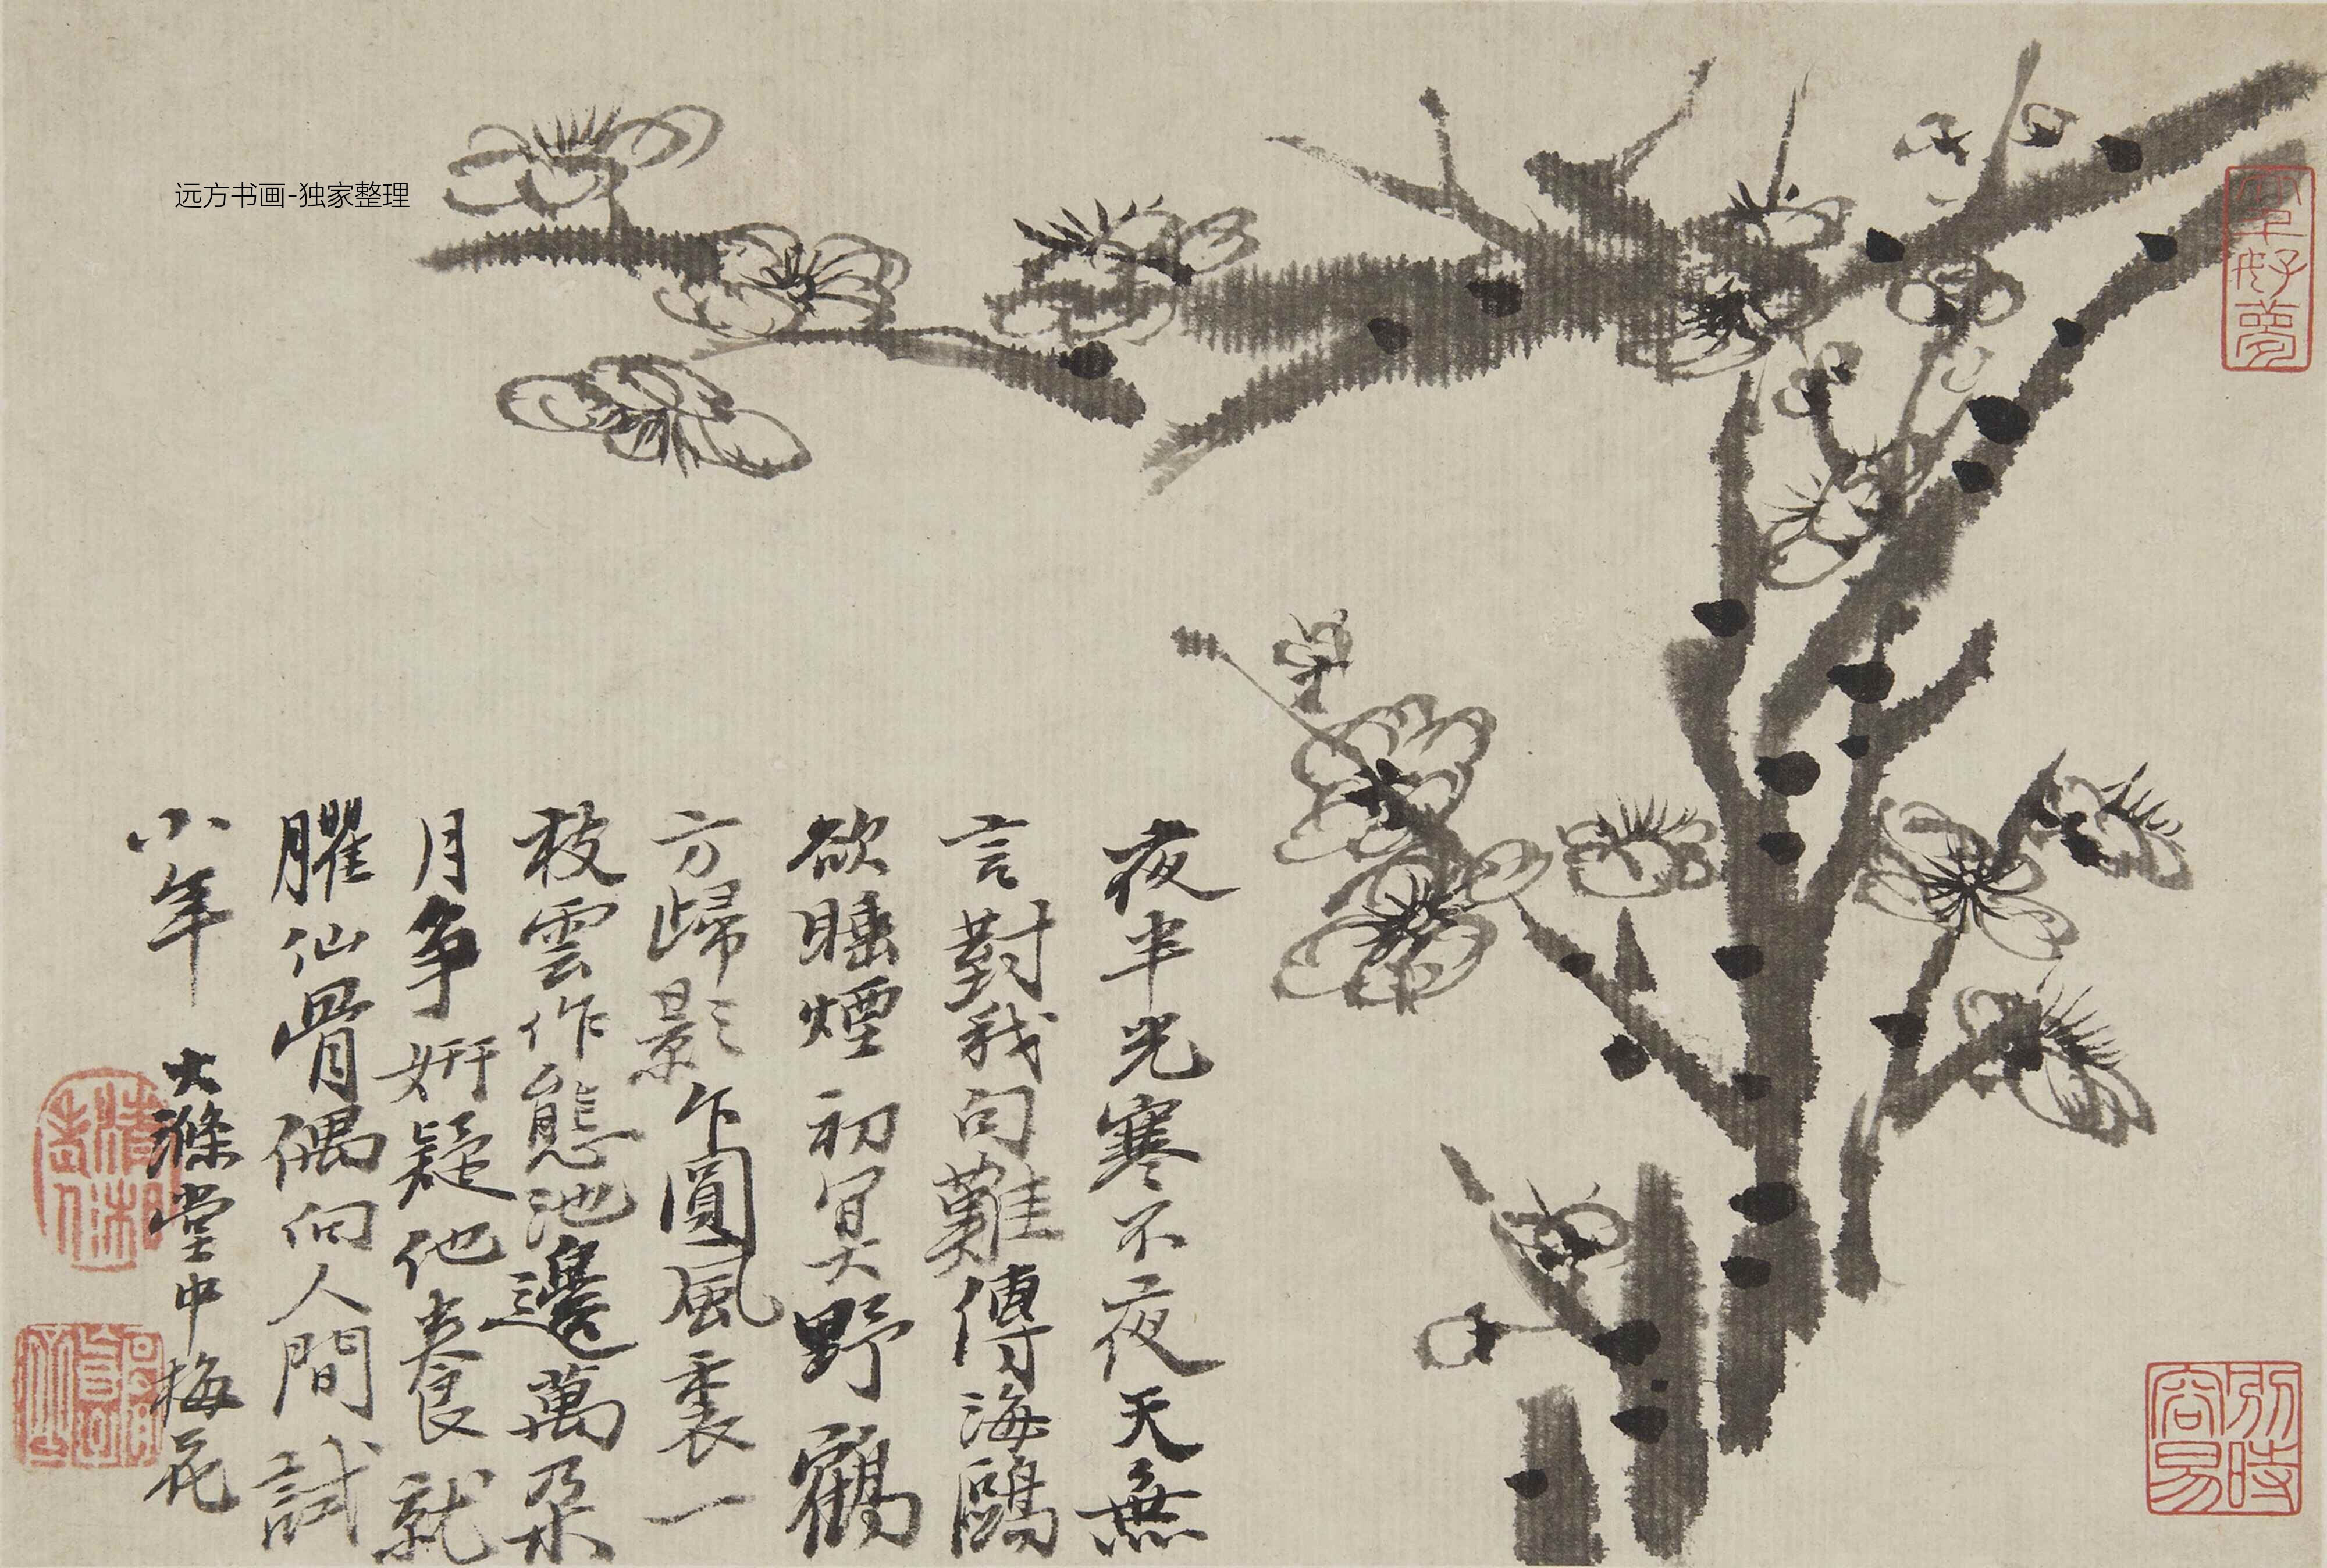 远方书画-独家整理
夜半光寒不夜天無
言對我句難傳海鷗
欲睡煙初冥野鶴
方歸影乍圓風裊一
枝雲作態池邊萬朵
月爭妍疑他養就
臞仙骨偶向人間試
小年 大滌堂中梅花
清湘老人
好夢
別時容易